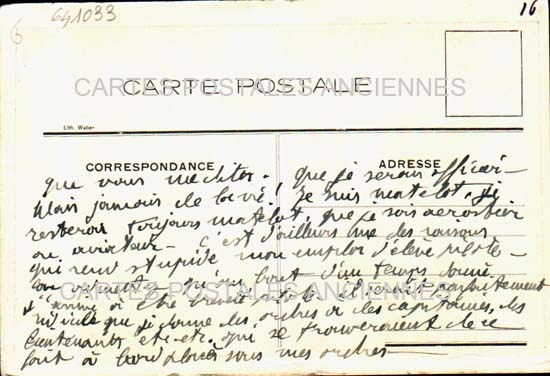 641033
16
6
CARTES POSTALES ANCIENNES
CARTE POSTALE
Lith. Weber
CORRESPONDANCE
ADRESSE
que vous méditez. que je serais officier —
Mais jamais de la vie! Je suis matelot. je
resterai toujours matelot, que je sois aérostier
ou aviateur — C'est d'ailleurs une des raisons
qui rend stupide mon emploi d'élève pilote —
d'un temps donné
CARTES POSTALES ANCIENNES
j'arrive à être breveté il serait parfaitement
ridicule que je donne des ordres à des capitaines, des
lieutenants etc. etc. qui se trouveraient de ce
fait à bord placés sous mes ordres —